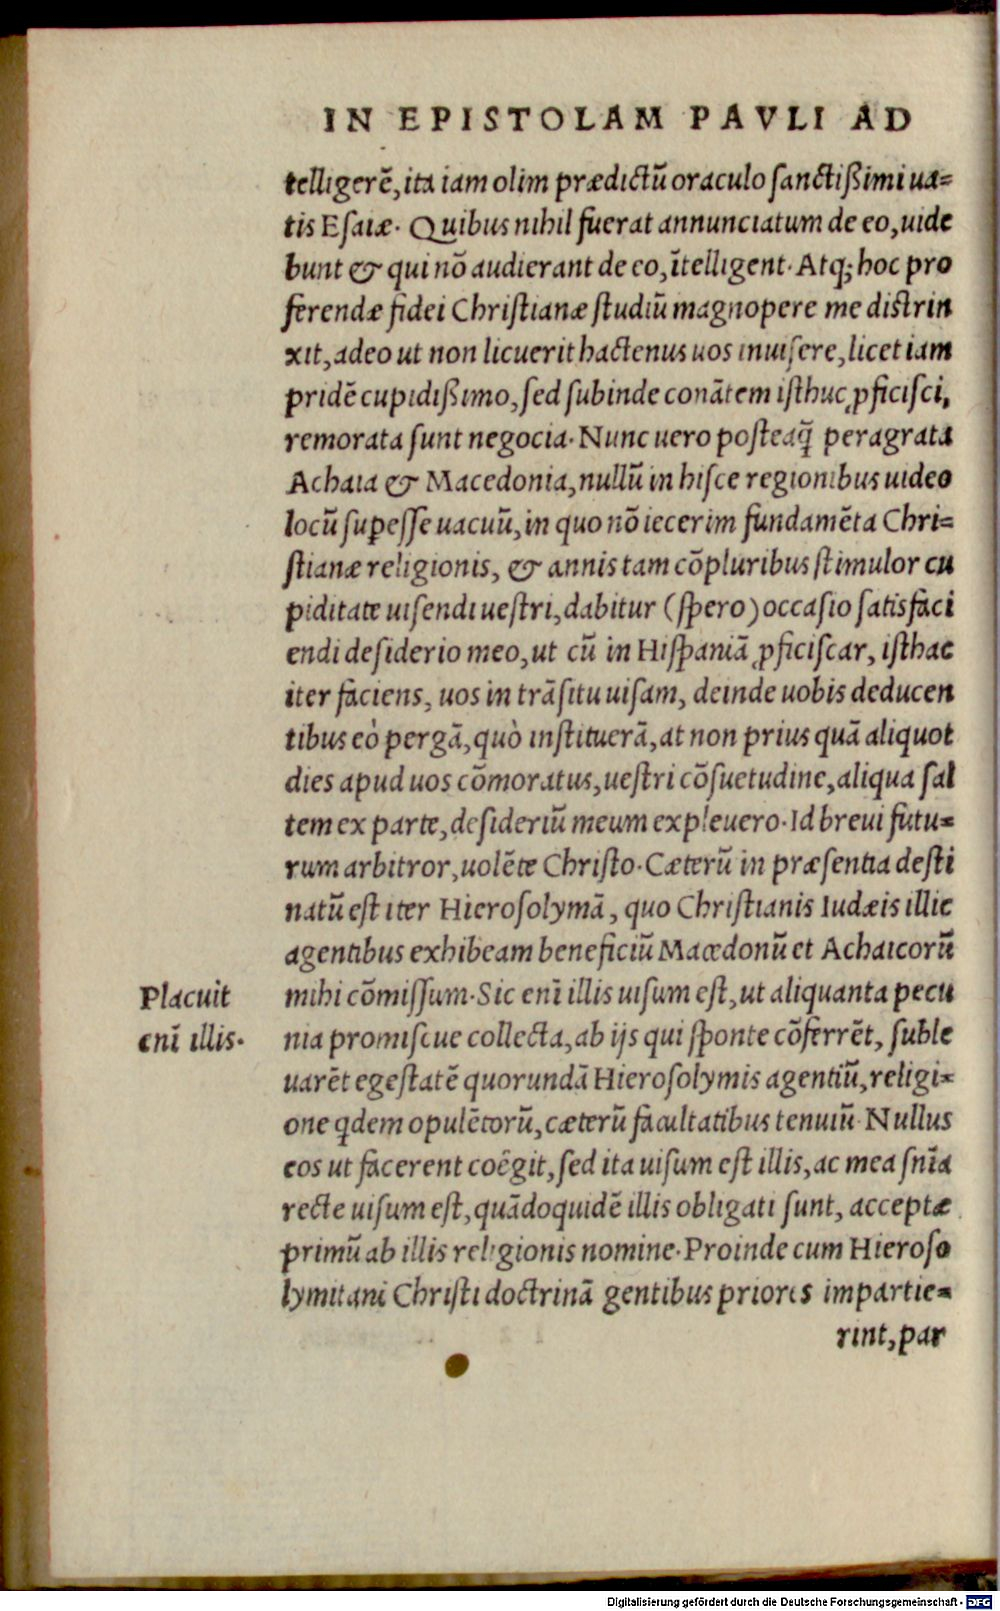 IN EPISTOLAM PAVLI AD
telligerē, ita iam olim prædictū oraculo ſanctißimi ua=
tis Eſaiæ. Quibus nihil fuerat annunciatum de eo, uide
bunt & qui nō audierant de eo, ītelligent. Atq; hoc pro
ferendæ fidei Chriſtianæ ſtudiū magnopere me diſtrin
xit, adeo ut non licuerit hactenus uos inuiſere, licet iam
pridē cupidißimo, ſed ſubinde conātem iſthuc ꝓficiſci,
remorata ſunt negocia. Nunc uero poſteaq̄ peragrata
Achaia & Macedonia, nullū in hiſce regionibus uideo
locū ſuꝑeſſe uacuū, in quo nō iecerim fundamēta Chri=
ſtianæ religionis, & annis tam cōpluribus ſtimulor cu
piditate uiſendi ueſtri, dabitur (ſpero) occaſio ſatisfaci
endi deſiderio meo, ut cū in Hiſpaniā ꝓficiſcar, iſthac
iter faciens, uos in trāſitu uiſam, deinde uobis deducen
tibus eò pergā, quò inſtituerā, at non prius quā aliquot
dies apud uos cōmoratus, ueſtri cōſuetudine, aliqua ſal
tem ex parte, deſideriū meum expleuero. Id breui futu=
rum arbitror, uolēte Chriſto. Cæterū in præſentia deſti
natū eſt iter Hieroſolymā, quo Chriſtianis Iudæis illic
agentibus exhibeam beneficiū Macedonū et Achaicorū
mihi cōmiſſum. Sic enī illis uiſum eſt, ut aliquanta pecu
nia promiſcue collecta, ab ijs qui ſponte cōferrēt, ſuble
uarēt egeſtatē quorundā Hieroſolymis agentiū, religi=
one qdem opulētorū, cæterū facultatibus tenuiū. Nullus
eos ut facerent coēgit, ſed ita uiſum eſt illis, ac mea ſnīa
recte uiſum eſt, quādoquidē illis obligati ſunt, acceptæ
primū ab illis religionis nomine. Proinde cum Hieroſo
lymitani Chriſti doctrinā gentibus priores impartie=
rint, par
Placuit
enī illis.
Digitalisierung gefördert durch die Deutsche Forschungsgemeinschaft - DFG